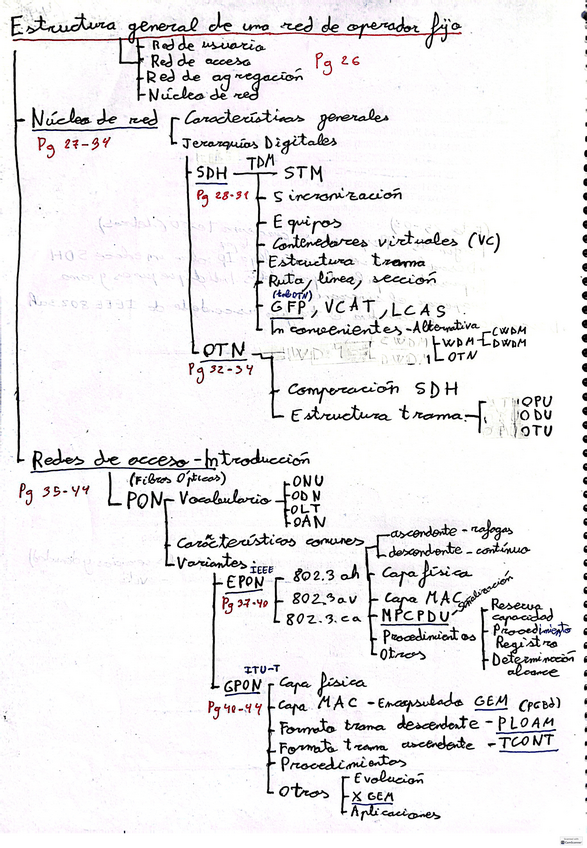 Estructura general de una red de operador fijo
Red de usuario
Red de acceso
Pg 26
Red de agregación
Núcleo de red
Núcleo de red
Características generales
Pg 27-34
Jerarquías Digitales
SDH TDM STM
Pg 28-31
Sincronización
Equipos
Contenedores virtuales (VC)
Estructura trama
Ruta, línea, sección
GFP, VCAT, LCAS
Inconvenientes - Alternativa
WDM
CWDM
DWDM
OTN
OTN
Pg 32-34
Comparación SDH
Estructura trama
OPU
ODU
OTU
Redes de acceso - Introducción
Pg 35-44
(Fibras Ópticas)
PON
Vocabulario
ONU
ODN
OLT
OAN
Características comunes
ascendente - rafagas
descendente - contínuo
Variantes
IEEE
EPON
Pg 37-40
802.3 ah
802.3 av
802.3.ca
Capa física
Capa MAC
MPCPDU - Señalización
Reserva capacidad
Procedimiento Registro
Determinación alcance
Procedimientos
Otros
ITU-T
GPON
Pg 40-44
Capa física
Capa MAC - Encapsulado GEM
Formato trama descendente - PLOAM
Formato trama ascendente - TCONT
Procedimientos
Otros
Evolución
X GEM
Aplicaciones